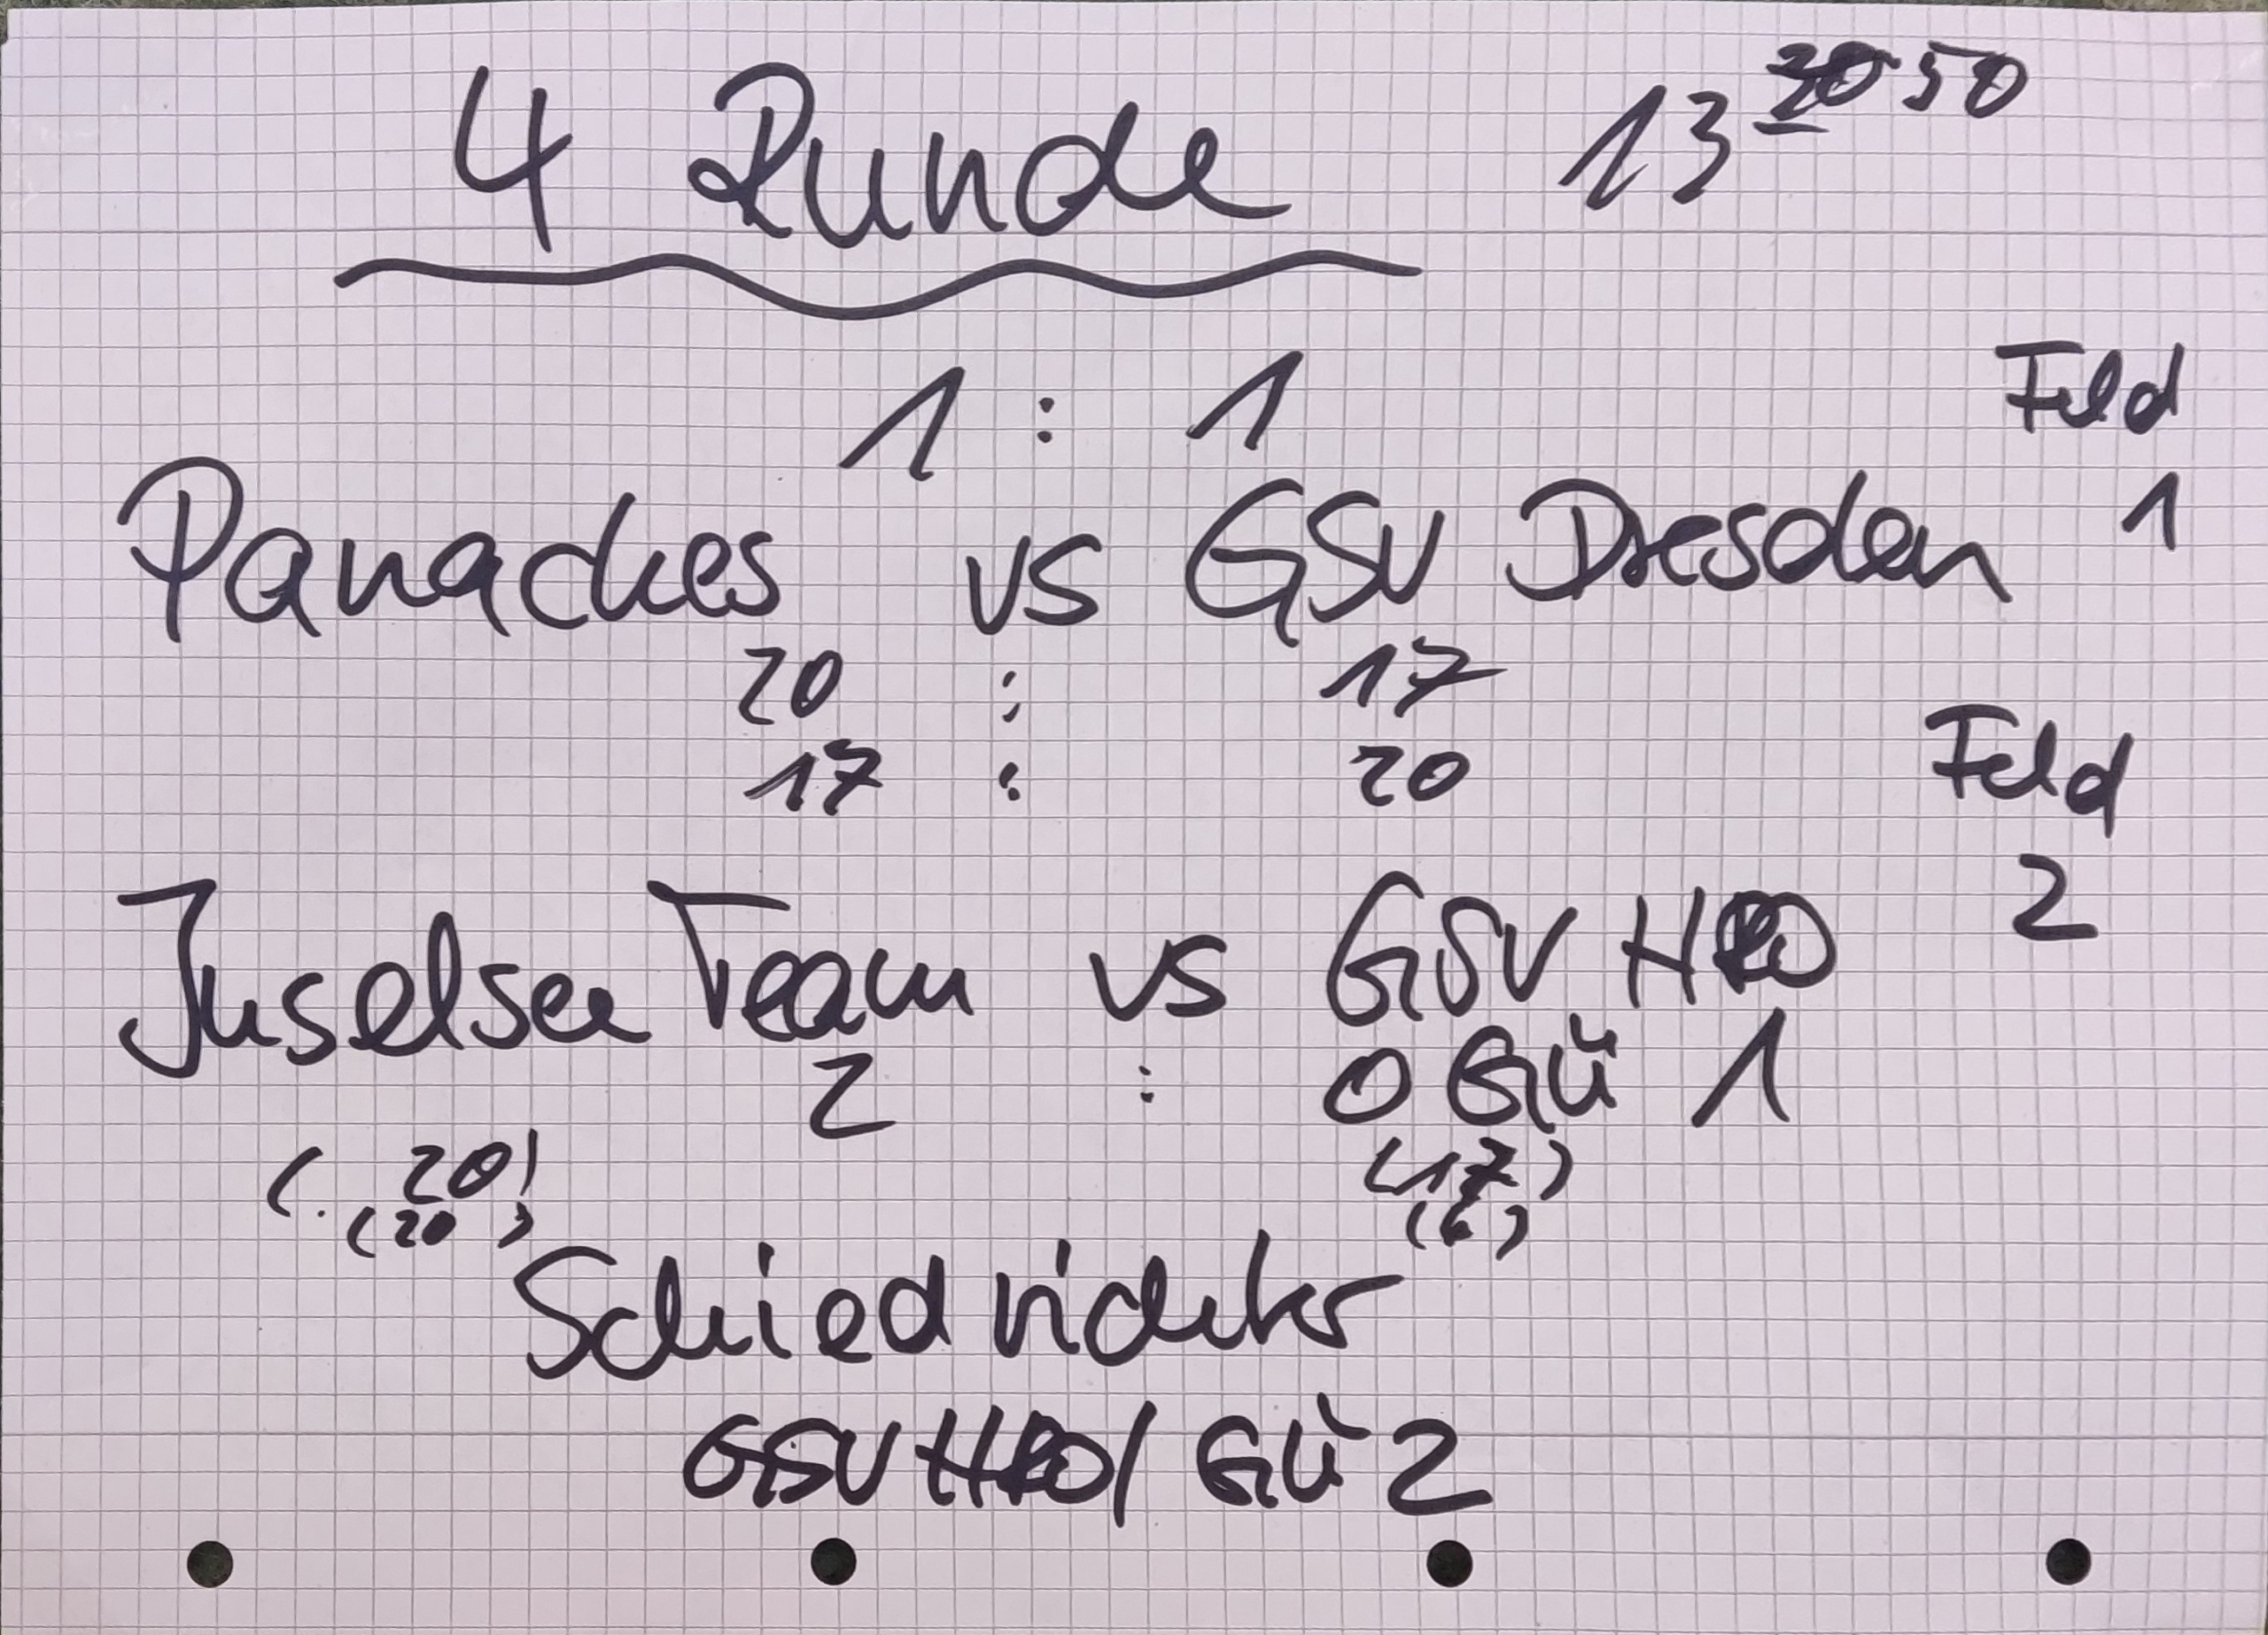 4 Runde 13 50
1 : 1 Feld
Panackes vs GSV Dresden 1
20 : 17
17 : 20 Feld
2
Inselsee Team vs GSV HRO
2 : 0 GÜ 1
(. 20) (17)
(20) (6)
Schiedrichter
GSV HRO/ GÜ 2